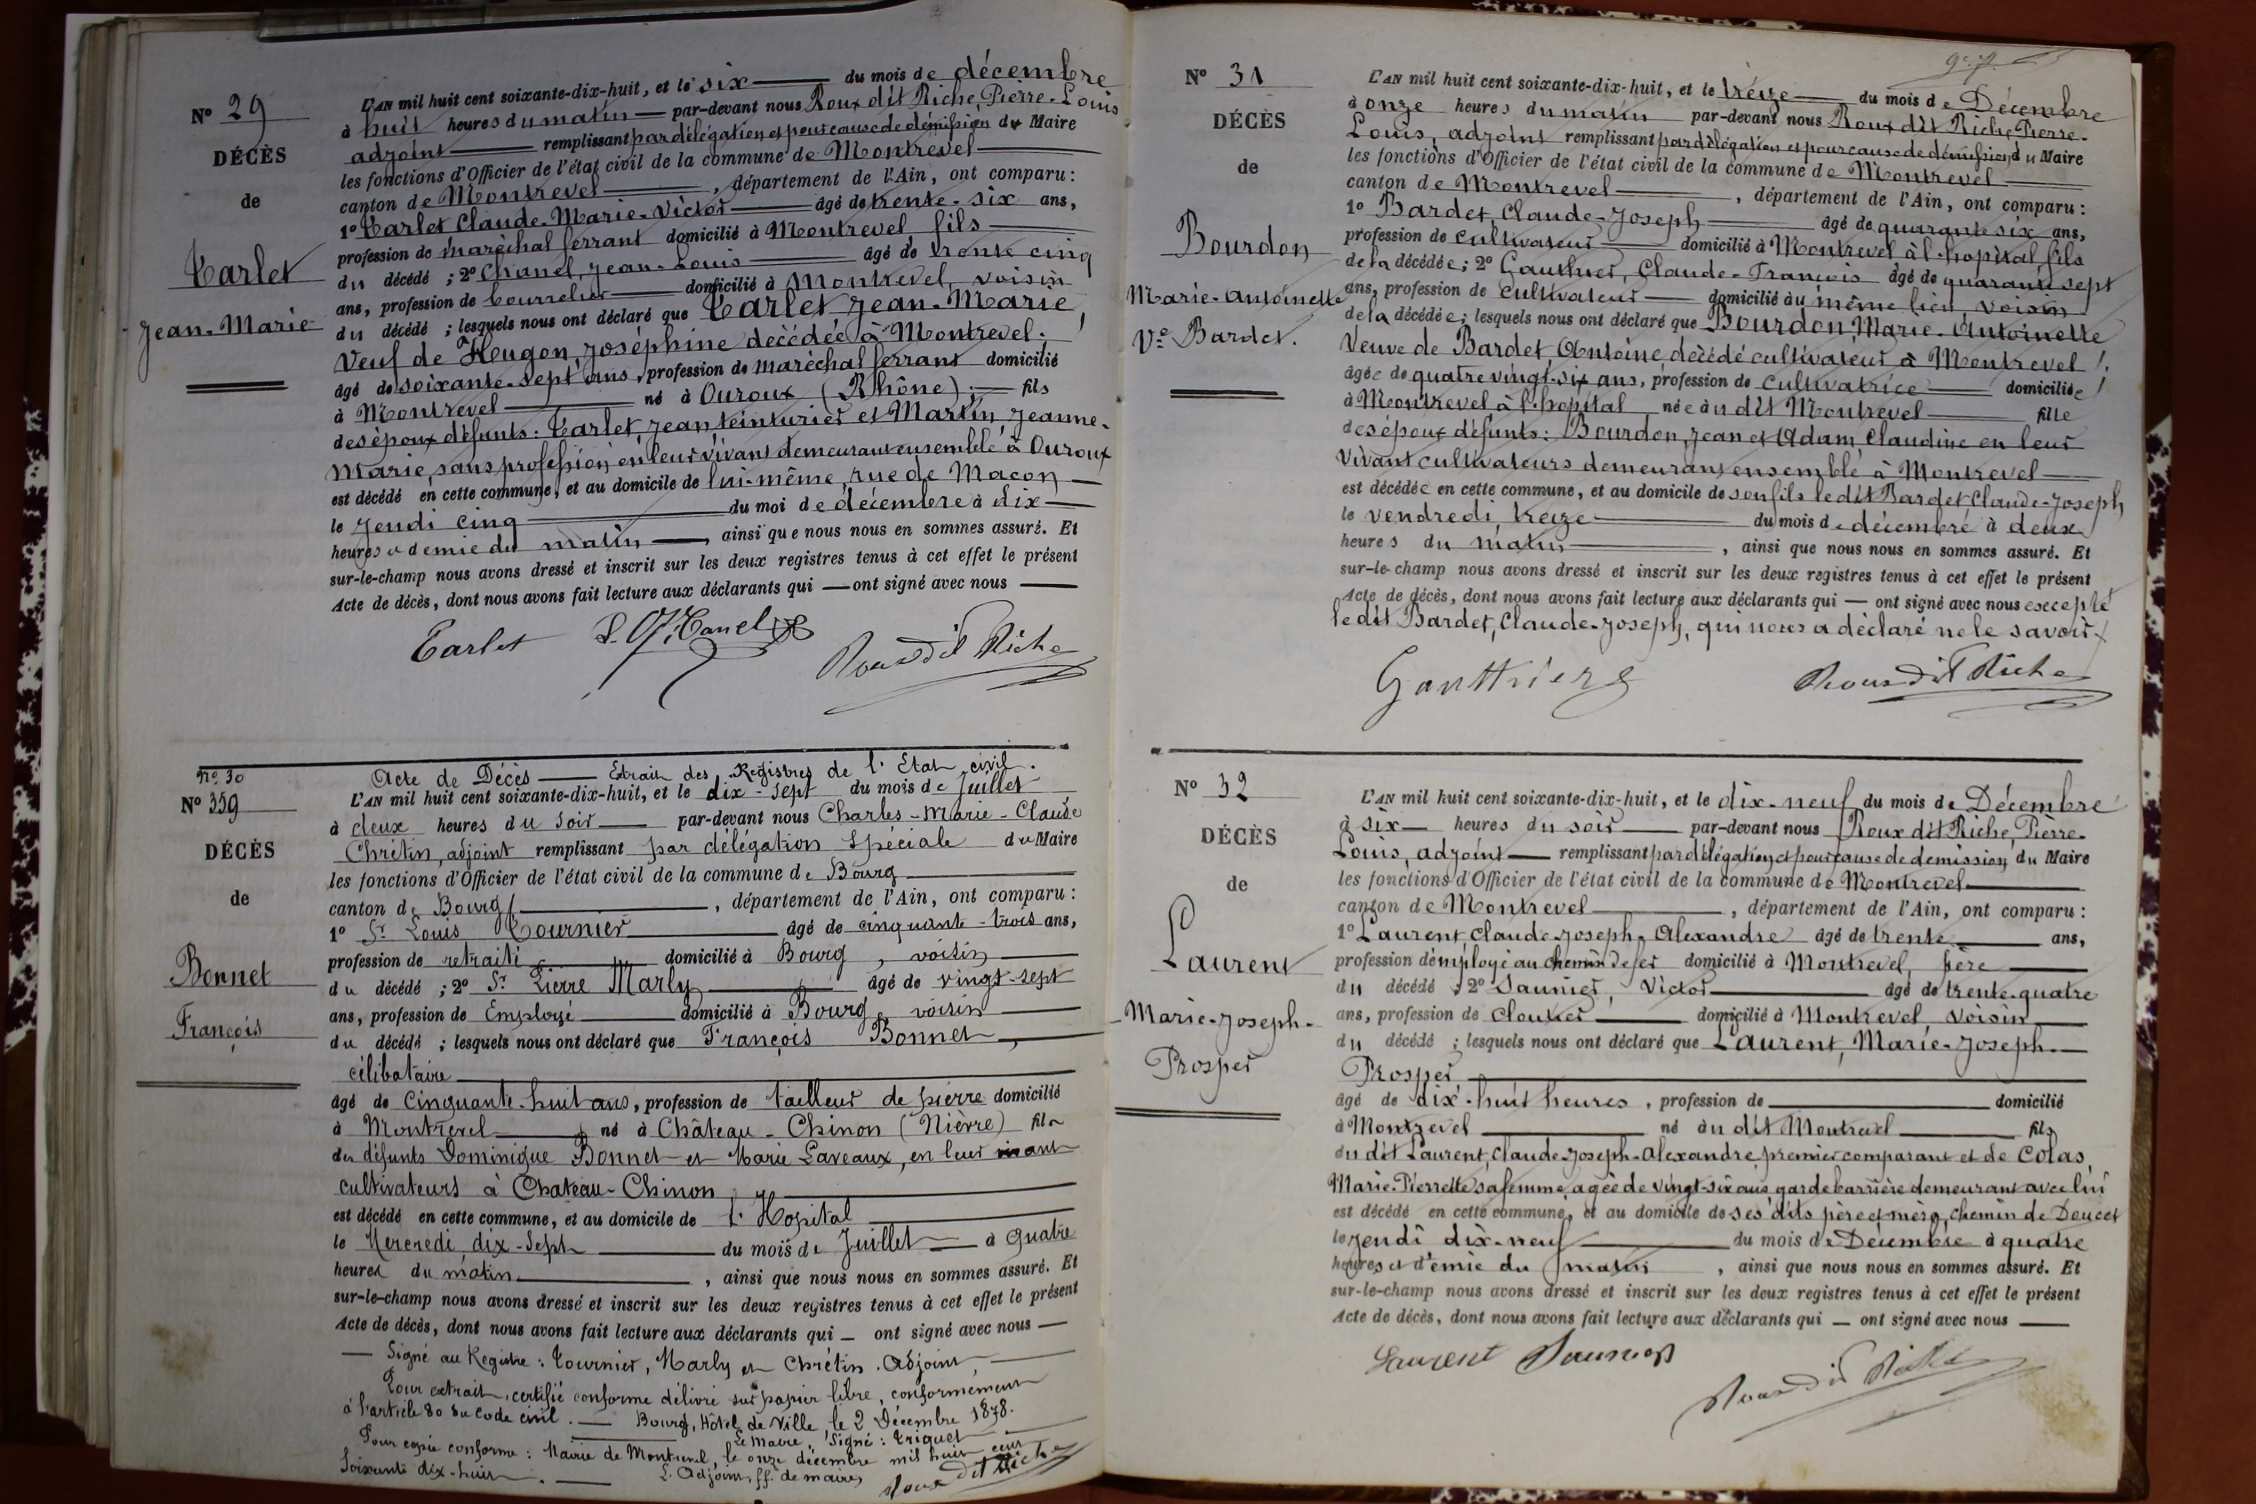 N° 29
DÉCÈS
de
Tarlet
Jean-Marie
L'AN mil huit cent soixante-dix-huit, et le six du mois de décembre
à huit heures du matin par-devant nous Roux dit Riche, Pierre-Louis
adjoint remplissant par délégation et pour cause de démission du Maire
les fonctions d'Officier de l'état civil de la commune de Montrevel
canton de Montrevel, département de l'Ain, ont comparu :
1° Tarlet Claude-Marie-Victor âgé de trente-six ans,
profession de maréchal ferrant domicilié à Montrevel fils
du décédé ; 2° Chanel, Jean-Louis âgé de trente cinq
ans, profession de bourrelier domicilié à Montrevel, voisin
du décédé ; lesquels nous ont déclaré que Tarlet Jean-Marie,
Veuf de Heugon, Joséphine décédée à Montrevel,
âgé de soixante-sept ans, profession de Maréchal ferrant domicilié
à Montrevel né à Ouroux (Rhône) ; fils
des époux défunts : Tarlet, Jean teinturier et Martin, Jeanne-
Marie, sans profession, en leur vivant demeurant ensemble à Ouroux
est décédé en cette commune, et au domicile de lui-même, rue de Macon
le jeudi cinq du moi de décembre à dix
heures et demie du matin, ainsi que nous nous en sommes assuré. Et
sur-le-champ nous avons dressé et inscrit sur les deux registres tenus à cet effet le présent
Acte de décès, dont nous avons fait lecture aux déclarants qui — ont signé avec nous
Tarlet Roux dit Riche
n° 30
N° 359
DÉCÈS
de
Bonnet
François
Acte de Décès — Extrait des Registres de l'Etat civil.
L'AN mil huit cent soixante-dix-huit, et le dix-sept du mois de Juillet
à deux heures du soir par-devant nous Charles-Marie-Claude
Chrétin, adjoint remplissant par délégation spéciale du Maire
les fonctions d'Officier de l'état civil de la commune de Bourg
canton de Bourg, département de l'Ain, ont comparu :
1° Sr Louis Tournier âgé de cinquante-trois ans,
profession de retraité domicilié à Bourg, voisin
du décédé ; 2° Sr Pierre Marly âgé de vingt-sept
ans, profession de Employé domicilié à Bourg, voisin
du décédé ; lesquels nous ont déclaré que François Bonnet,
célibataire
âgé de cinquante-huit ans, profession de tailleur de pierre domicilié
à Montrevel né à Château-Chinon (Nièvre) fils
des défunts Dominique Bonnet et Marie Laveaux, en leur vivant
cultivateurs à Chateau-Chinon
est décédé en cette commune, et au domicile de l'Hopital
le Mercredi dix-sept du mois de Juillet à quatre
heures du matin, ainsi que nous nous en sommes assuré. Et
sur-le-champ nous avons dressé et inscrit sur les deux registres tenus à cet effet le présent
Acte de décès, dont nous avons fait lecture aux déclarants qui — ont signé avec nous —
— Signé au Registre : Tournier, Marly et Chrétin. Adjoint
Pour extrait, certifié conforme délivré sur papier libre, conformément
à l'article 80 du Code civil. — Bourg, Hôtel de Ville, le 2 Décembre 1878.
Le Maire, Signé : Triquet
Pour copie conforme : Mairie de Montrevel, le onze décembre mil huit cent
soixante dix-huit. L'Adjoint, ff. de maire,
Roux dit Riche
N° 31
DÉCÈS
de
Bourdon
Marie-Antoinette
Ve Bardet.
L'AN mil huit cent soixante-dix-huit, et le treize du mois de Décembre
à onze heures du matin par-devant nous Roux dit Riche, Pierre-
Louis, adjoint remplissant par délégation et pour cause de démission du Maire
les fonctions d'Officier de l'état civil de la commune de Montrevel
canton de Montrevel, département de l'Ain, ont comparu :
1° Bardet, Claude-Joseph âgé de quarante six ans,
profession de cultivateur domicilié à Montrevel à l'hopital, fils
de la décédée ; 2° Gauthier, Claude-François âgé de quarante sept
ans, profession de cultivateur domicilié au même lieu, voisin
de la décédée ; lesquels nous ont déclaré que Bourdon, Marie-Antoinette
Veuve de Bardet, Antoine, décédé cultivateur à Montrevel,
âgée de quatre vingt-six ans, profession de cultivatrice domiciliée
à Montrevel à l'hopital née au dit Montrevel fille
des époux défunts : Bourdon, Jean et Adam, Claudine en leur
vivant cultivateurs demeurant ensemble à Montrevel
est décédée en cette commune, et au domicile de son fils le dit Bardet Claude-Joseph
le vendredi, treize du mois de décembre à deux
heures du matin, ainsi que nous nous en sommes assuré. Et
sur-le-champ nous avons dressé et inscrit sur les deux registres tenus à cet effet le présent
Acte de décès, dont nous avons fait lecture aux déclarants qui — ont signé avec nous excepté
le dit Bardet, Claude-Joseph, qui nous a déclaré ne le savoir
Gauthier Roux dit Riche
N° 32
DÉCÈS
de
Laurent
Marie-Joseph-
Prosper
L'AN mil huit cent soixante-dix-huit, et le dix-neuf du mois de Décembre
à six heures du soir par-devant nous Roux dit Riche, Pierre-
Louis, adjoint remplissant par délégation et pour cause de démission du Maire
les fonctions d'Officier de l'état civil de la commune de Montrevel
canton de Montrevel, département de l'Ain, ont comparu :
1° Laurent, Claude-Joseph-Alexandre âgé de trente ans,
profession d'employé au chemin de fer domicilié à Montrevel, père
du décédé ; 2° Saunier, Victor âgé de trente-quatre
ans, profession de cloutier domicilié à Montrevel, voisin
du décédé ; lesquels nous ont déclaré que Laurent, Marie-Joseph-
Prosper
âgé de dix-huit heures, profession de domicilié
à Montrevel né au dit Montrevel fils
du dit Laurent, Claude-Joseph-Alexandre, premier comparant et de Colas,
Marie-Pierrette sa femme, agée de vingt-six ans, garde barrière demeurant avec lui
est décédé en cette commune, et au domicile de ses dits père et mère, chemin de Doucet
le jeudi dix-neuf du mois de Décembre à quatre
heures et d'emie du matin, ainsi que nous nous en sommes assuré. Et
sur-le-champ nous avons dressé et inscrit sur les deux registres tenus à cet effet le présent
Acte de décès, dont nous avons fait lecture aux déclarants qui — ont signé avec nous
Laurent Saunier
Roux dit Riche